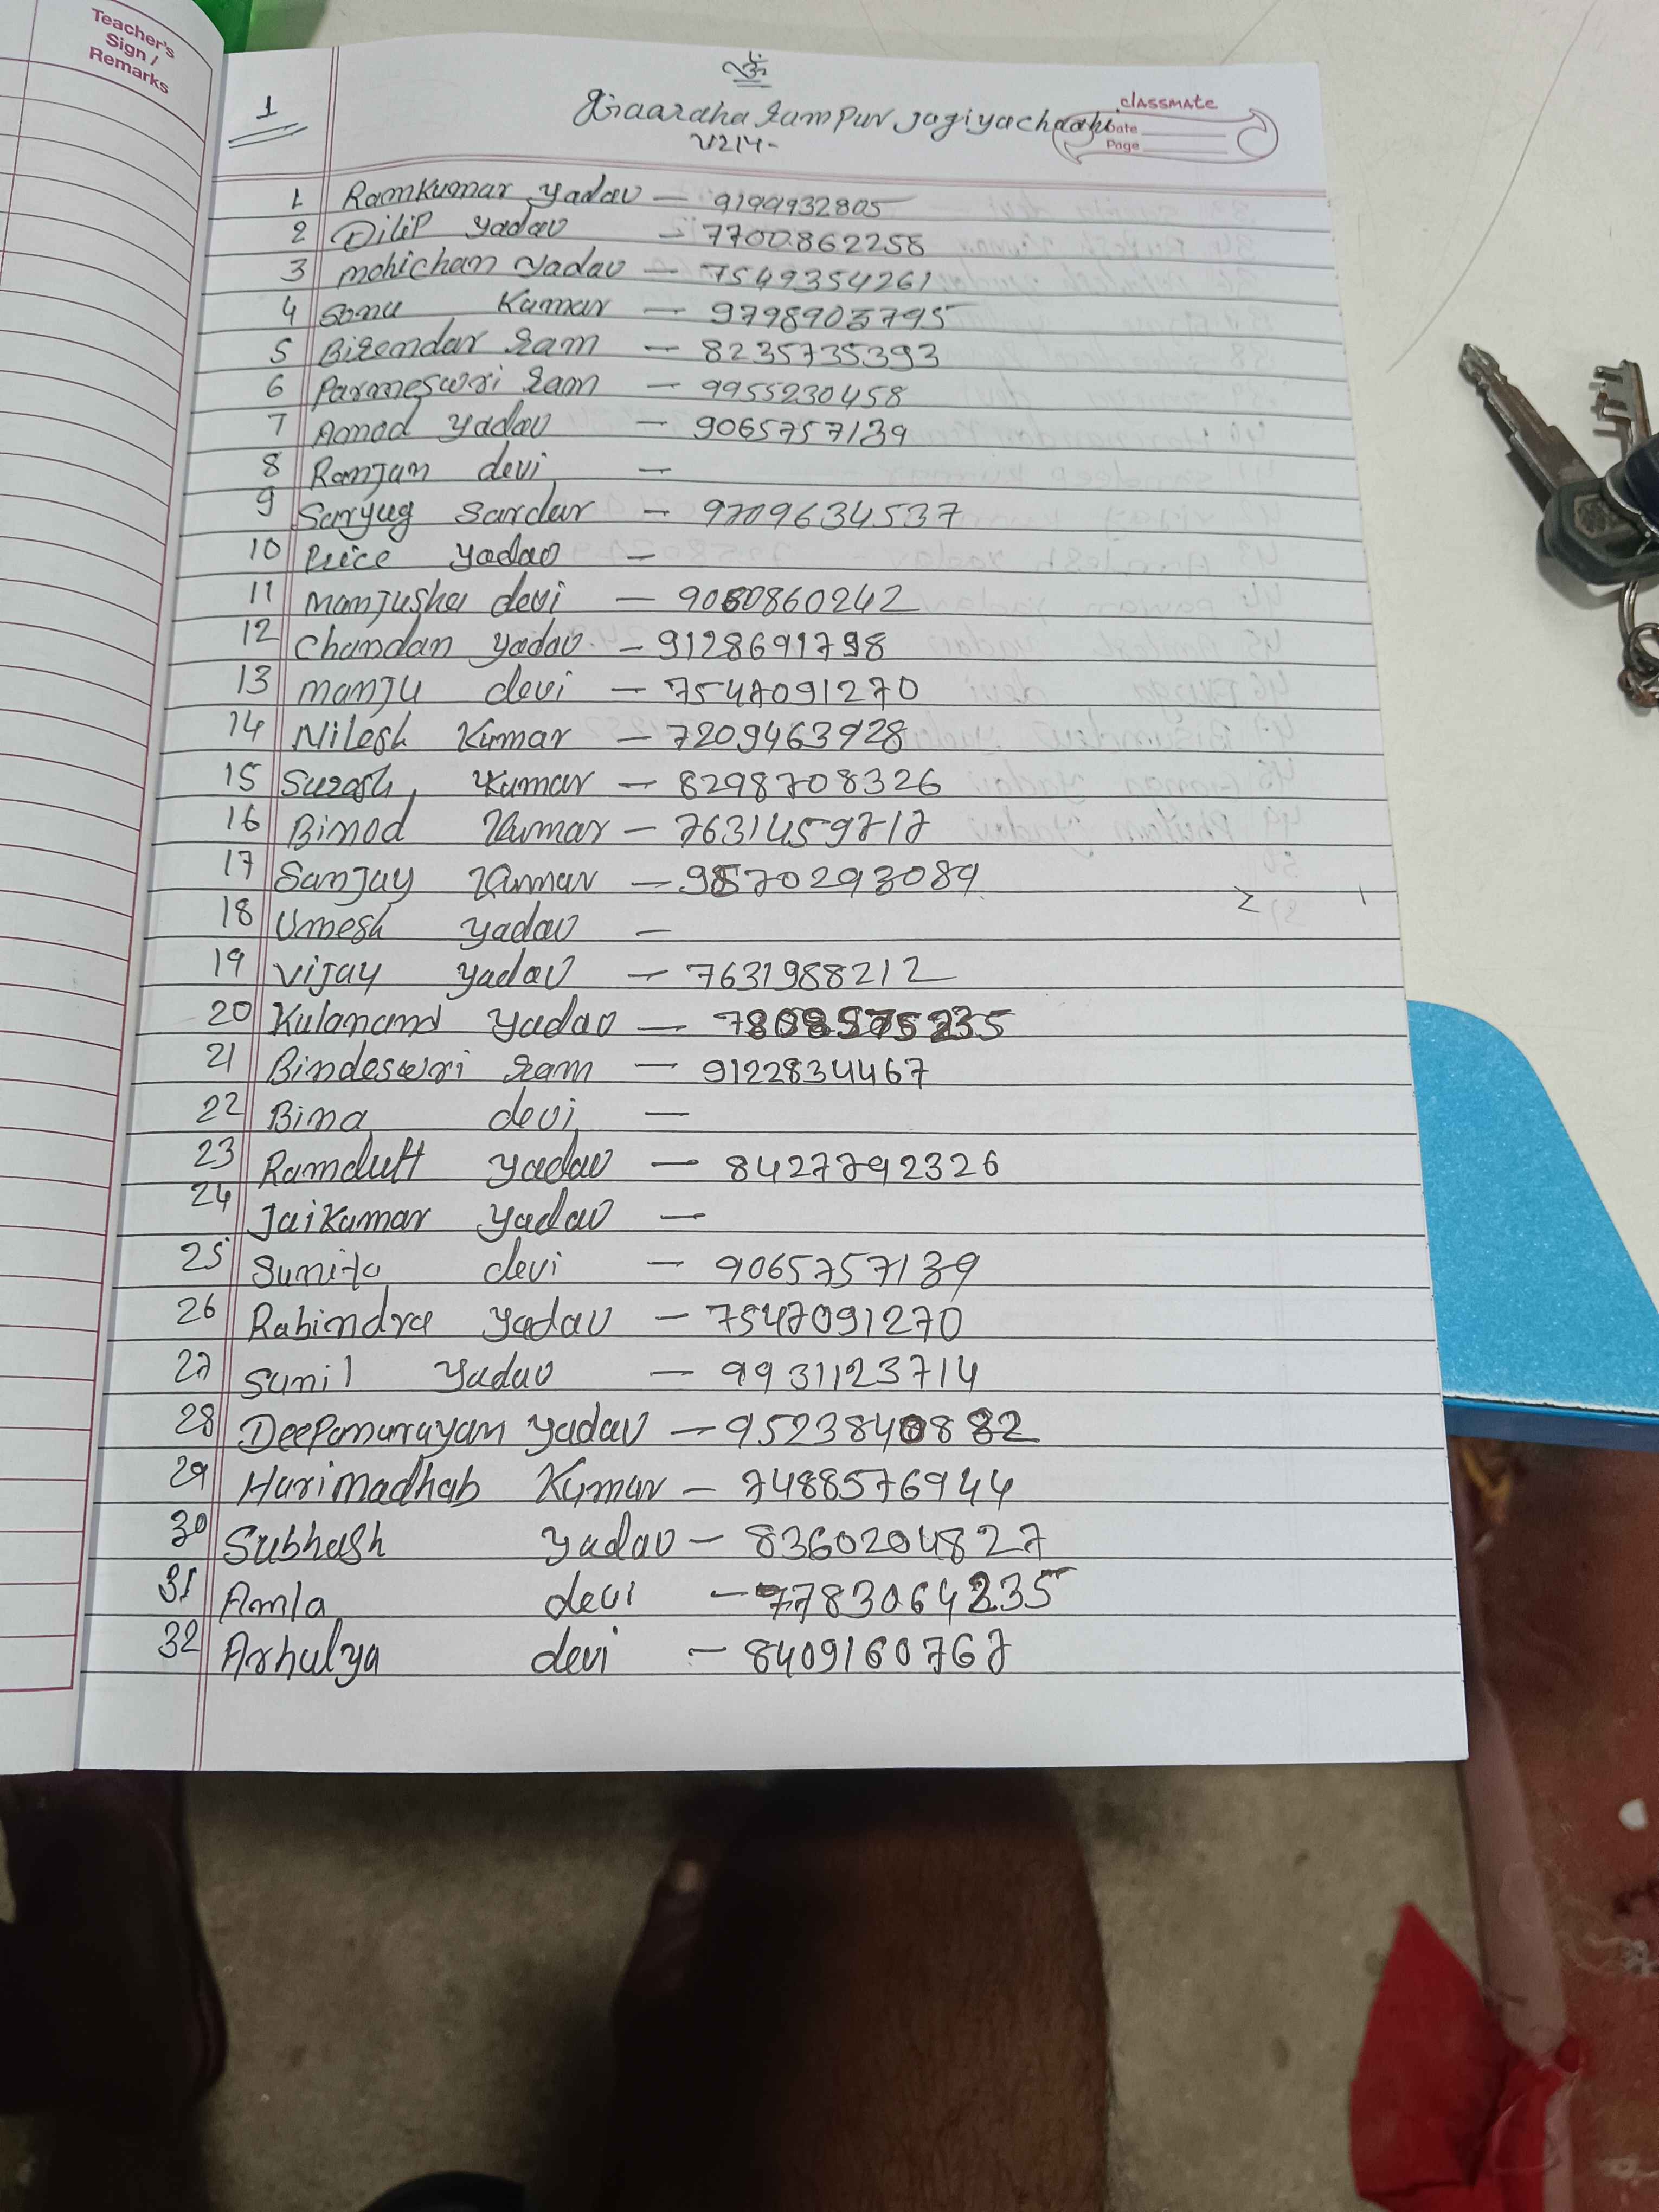 Teacher's
Sign /
Remarks
ॐ
1
Rampur Jogiyachaahi
classmate
Date
Page
1 Ramkumar Yadav — 9199932805
2 Dilip Yadav — 7700862258
3 mohichan Yadav — 7549354261
4 Sonu Kumar — 9798903795
5 Birendar Ram — 8235735393
6 Parmeswri Ram — 9955230458
7 Amod Yadav — 9065757139
8 Ramjan devi —
9 Saryug Sardar — 9709634537
10 Yadav —
11 Manjusha devi — 9060860242
12 Chandan Yadav — 9128691798
13 manju devi — 7547091270
14 Nilesh Kumar — 7209463928
15 Suresh Kumar — 8298708326
16 Binod Kumar — 7631459717
17 Sanjay Kumar —
18 Umesh Yadav —
19 Vijay Yadav — 7631988212
20 Kulanand Yadav —
21 Bindeswri Ram — 9122834467
22 Bina devi —
23 Ramdutt Yadav — 8427792326
24 Jaikumar Yadav —
25 Sunita devi — 9065757139
26 Rabindra Yadav — 7547091270
27 Sunil Yadav — 9931123714
28 Deepanarayan Yadav — 9523840882
29 Harimadhab Kumar — 7488576944
30 Subhash Yadav — 8360204827
31 Amla devi — 7783064235
32 Arhulya devi — 8409160767